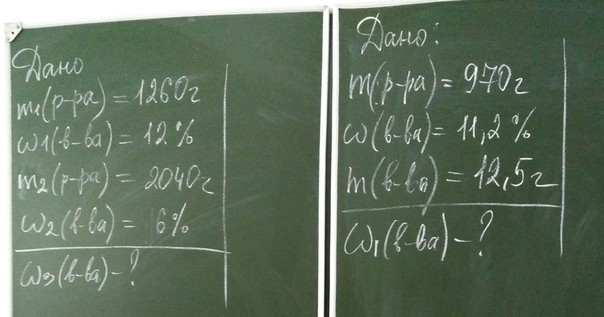 Дано
m1(р-ра) = 1260г
ω1(в-ва) = 12%
m2(р-ра) = 2040г
ω2(в-ва) = 6%
ω3(в-ва) - ?
Дано:
m(р-ра) = 970г
ω(в-ва) = 11,2%
m(в-ва) = 12,5г
ω1(в-ва) - ?